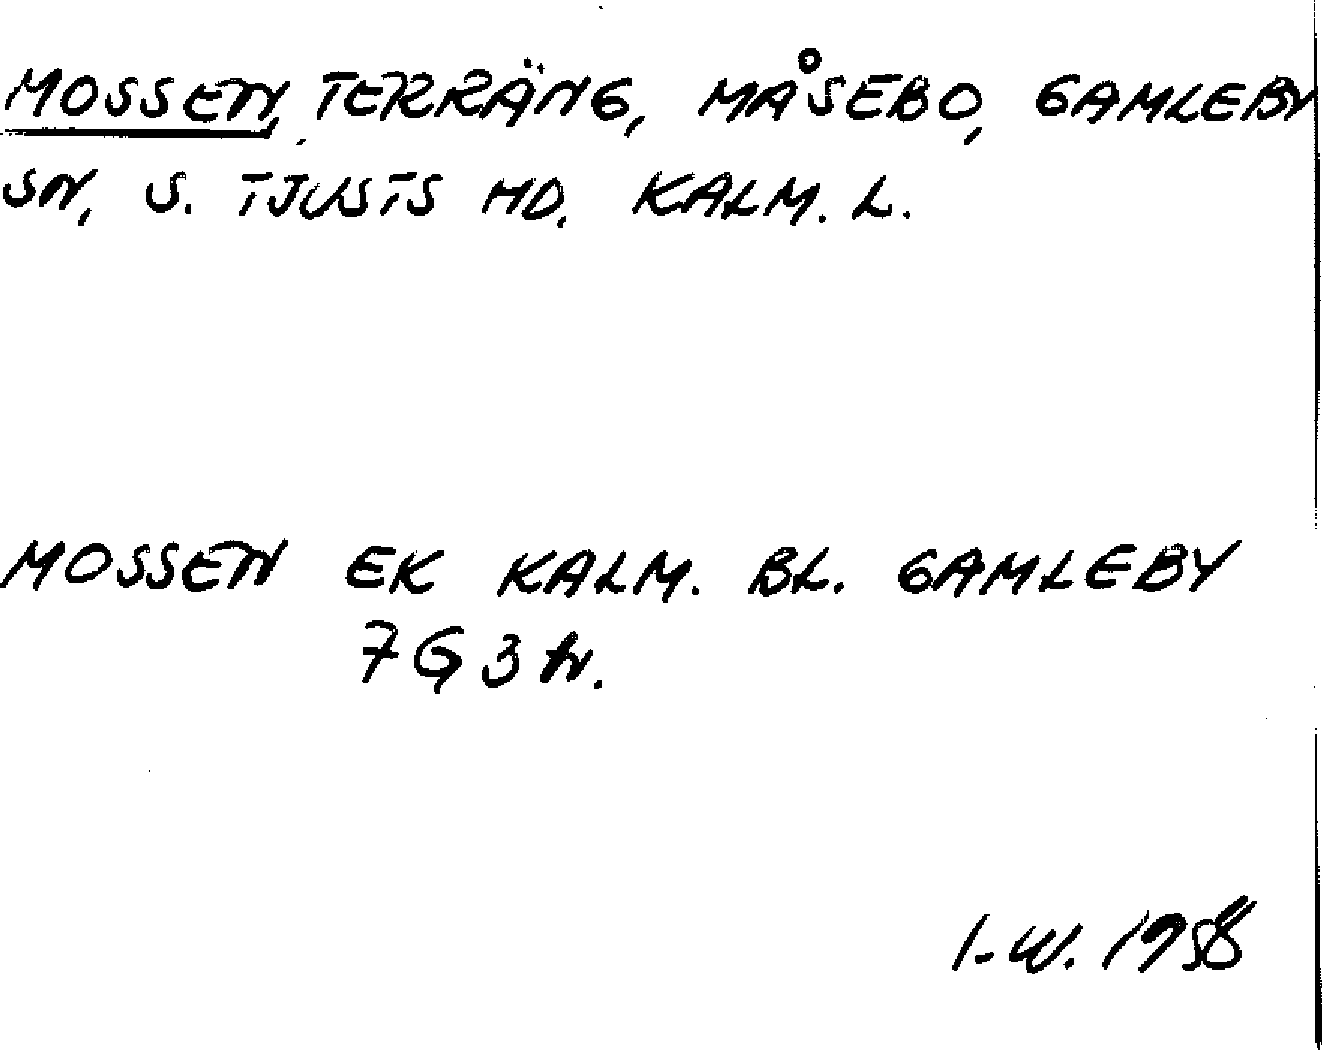 MOSSEN, TERRÄNG, MÅSEBO, GAMLEBY
SN, S. TJUSTS HD. KALM. L.
MOSSEN EK KALM. BL. GAMLEBY
7G3 tr.
I-W. 1958